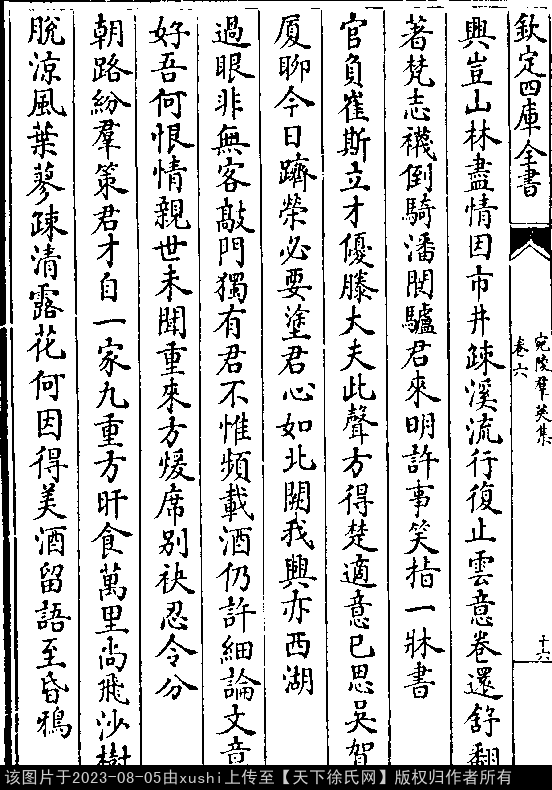 欽定四庫全書
宛陵羣英集
卷六
十六
興豈山林盡情因市井疎溪流行復止雲意卷還舒翻
著梵志襪倒騎潘閬驢君來明許事笑指一牀書
官負崔斯立才優滕大夫此聲方得楚適意已思吳賀
厦聊今日躋榮必要塗君心如北闕我興亦西湖
過眼非無客敲門獨有君不惟頻載酒仍許細論文音
好吾何恨情親世未聞重來方煖席別袂忍令分
朝路紛羣策君才自一家九重方旰食萬里尚飛沙樹
脫涼風葉蓼疎清露花何因得美酒留語至昏鴉
该图片于2023-08-05由xushi上传至【天下徐氏网】版权归作者所有